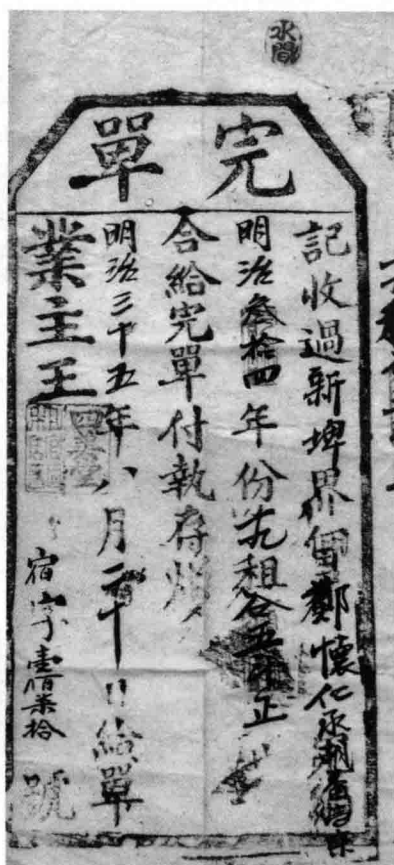 水間
完單
記收過新埤界佃鄭懷仁承
明治叁拾四年份九租谷五正
合給完單付執存炤
明治三十五年八月二十日給單
業主王
宿字壹佰柒拾號